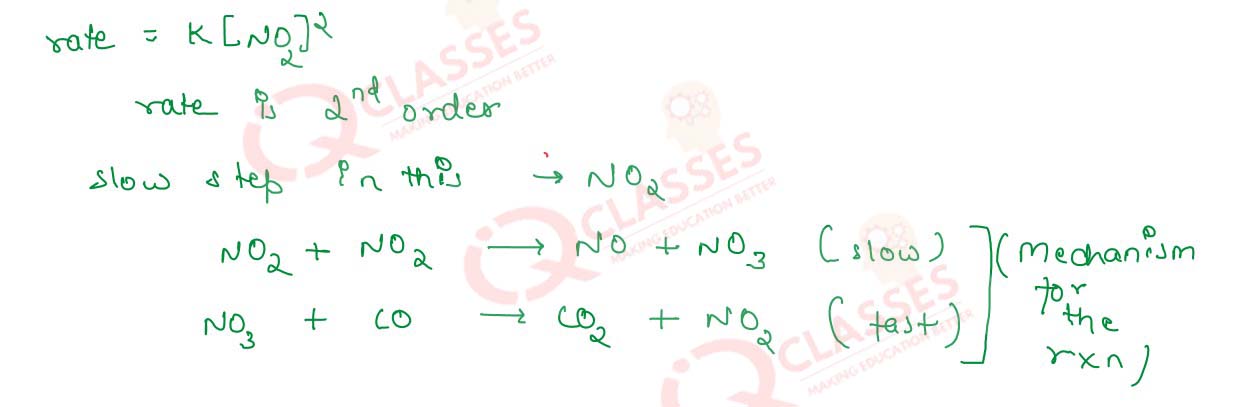 rate = K[NO2]2
rate is 2nd order
slow step in this → NO2
NO2 + NO2 → NO + NO3 (slow)
NO3 + CO → CO2 + NO2 (fast)
] (Mechanism
for
the
rxn)
iQ CLASSES
MAKING EDUCATION BETTER
iQ CLASSES
MAKING EDUCATION BETTER
iQ CLASSES
MAKING EDUCATION BETTER